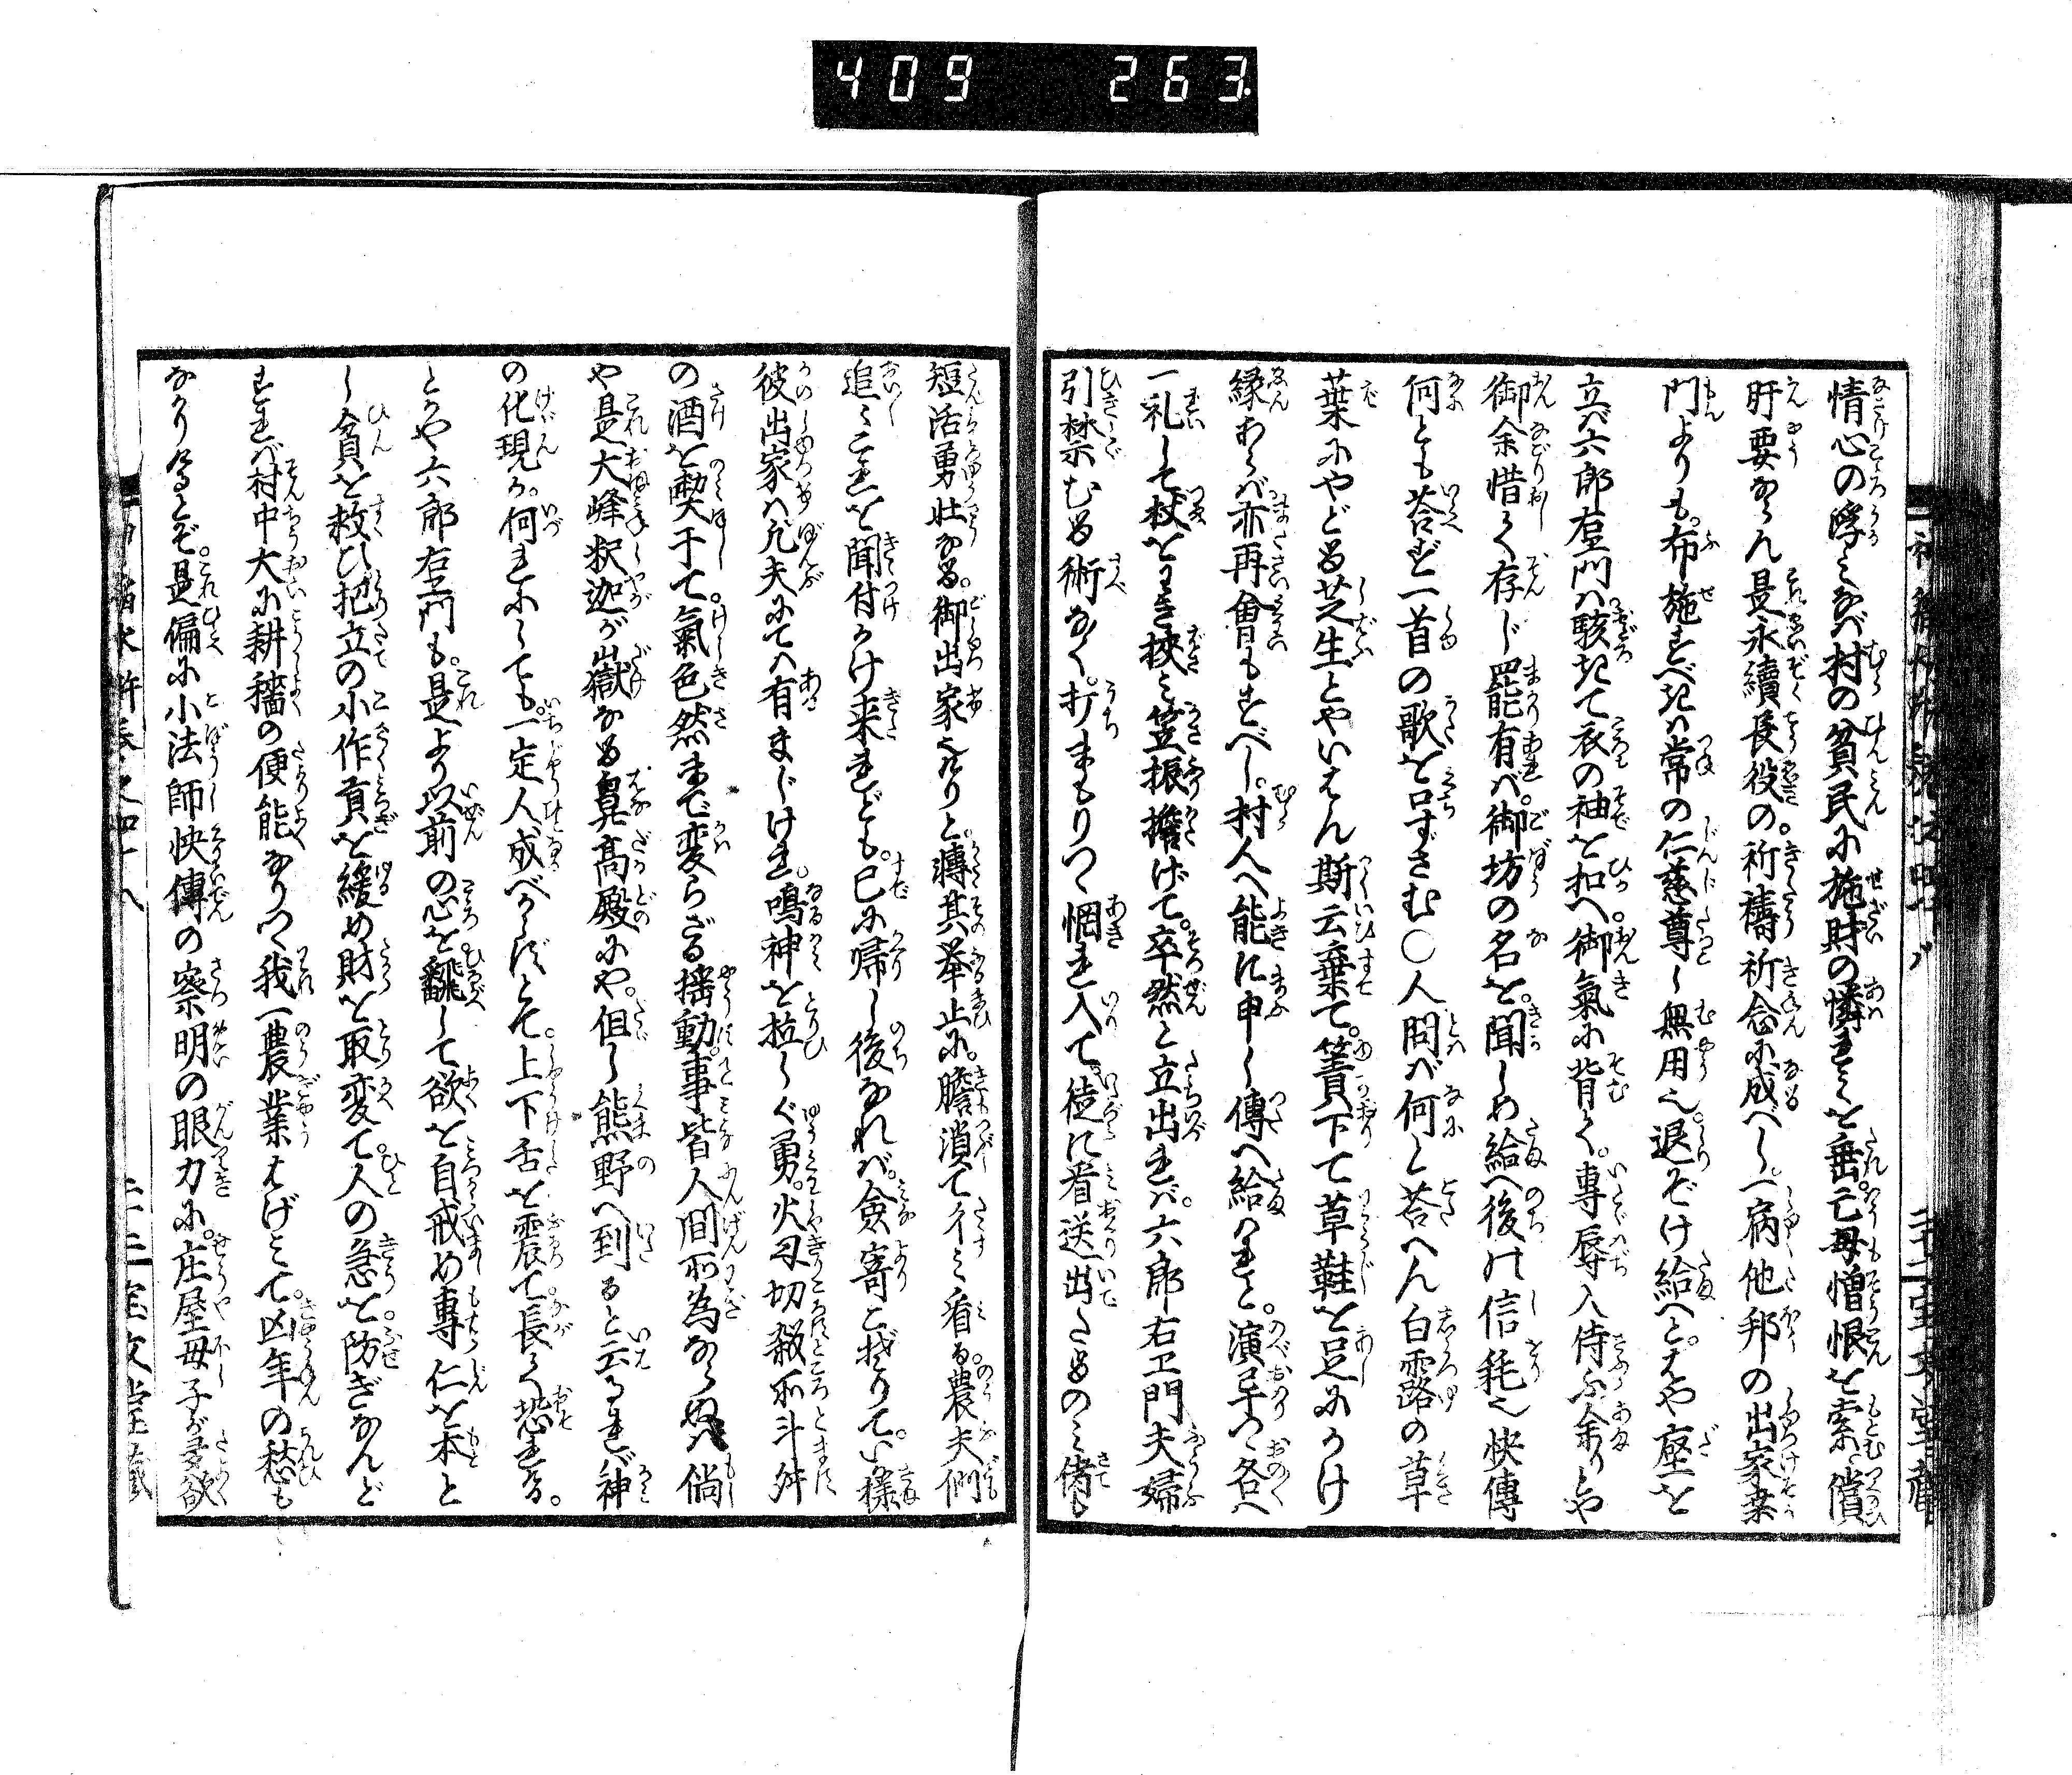 409 263
情心の浮ミなば村の貧民に施財の憐れミを垂。亡母憎恨を索。償
肝要ならん是永續長役の。祈禱祈念に成べし。一病他邦の出家葉
門よりも。布施すべきハ常の仁慈尊し無用也。退ぞけ給へと。はや座を
立バ六郎右エ門ハ駭きて衣の袖を扣へ御氣に背く。專辱入侍ふ余りとや
御余惜く存じ罷有バ。御坊の名を。聞しめ給へ後の信耗也快傳
何とも荅ず一首の歌を口ずさむ〇人問バ何と荅へん白露の草
葉にやどる芝生とやいはん斯云棄て。簀下て草鞋を足にかけ
縁あらバ亦再會もすべし。村人へ能に申し傳へ給はれと。演早つゝ各へ
一礼して杖をわき挾ミ笠振擔げて。卒然と立出れバ。六郎右エ門夫婦
引禁むる術なく。打まもりつゝ惘れ入て徒に看送出たるのミ偖も
短活勇壮なる。御出家也けりと。轉其挙止に。膽潰てイミ看る農夫們
追ミこれを聞付かけ来れども。已に帰し後なれバ。僉寄こぞりて。い樣
彼出家ハ凡夫にてハ有まじけれ。鳴神を拉しぐ勇。火刄切殺所斗舛
の酒を喫干て。氣色然まで変らざる揺動。事皆人間所為ならぬハ倘
や是大峰釈迦が嶽なる鼻高殿にや。但し熊野へ到ると云るれバ神
の化現か。何れにしても。一定人成べからずとて。上下舌を震て。長く恐れける。
とかや六郎右エ門も。是より以前の心を飜して欲を自戒め專仁を本と
し貧を救ひ把立の小作貢を緩め財を取変て。人の急を。防ぎなんど
すれバ村中大に耕穡の便能なりつゝ我一農業はげミて。凶年の愁も
なかりけるとぞ。是偏に小法師快傳の察明の眼力に。庄屋母子が多欲